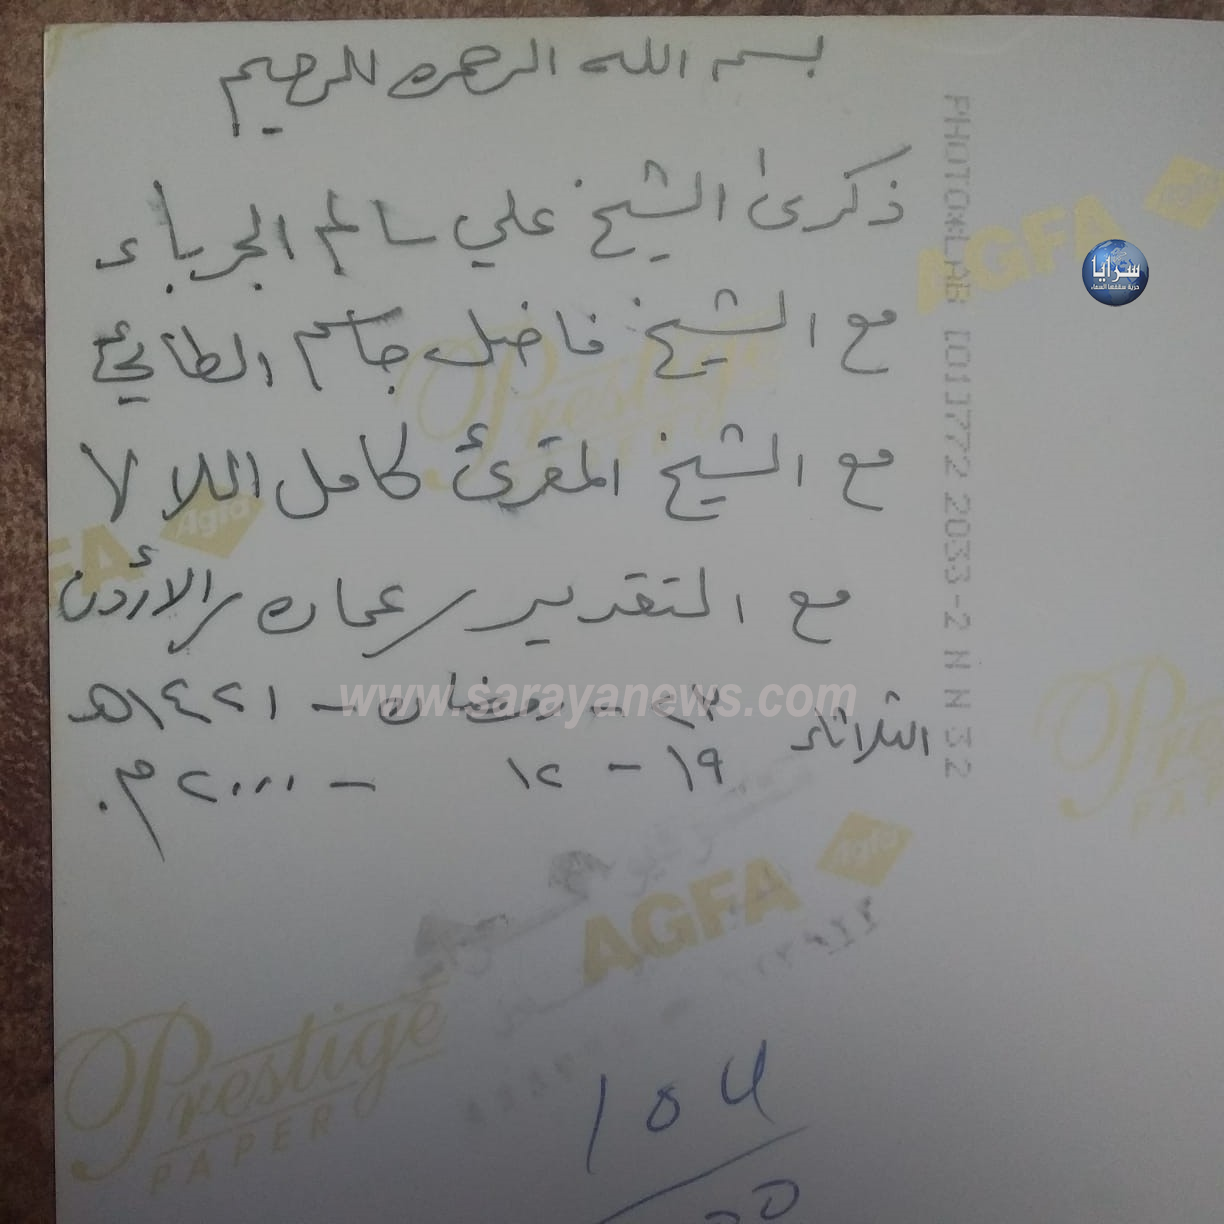 بسم الله الرحمن الرحيم
ذكرى الشيخ علي سالم الجرباء
مع الشيخ فاضل جاسم الطائي
مع الشيخ المقرئ كامل اللالا
مع التقدير / عمان / الأردن
الثلاثاء ٢٣ - رمضان - ١٤٢١هـ
١٩ - ١٢ - ٢٠٠٠م.
www.sarayanews.com
سرايا
حرية سقفها السماء
PHOTO*LAB
2033-2 N N 32
AGFA
Agfa
Prestige
PAPER
AGFA
Agfa
Prestige
PAPER